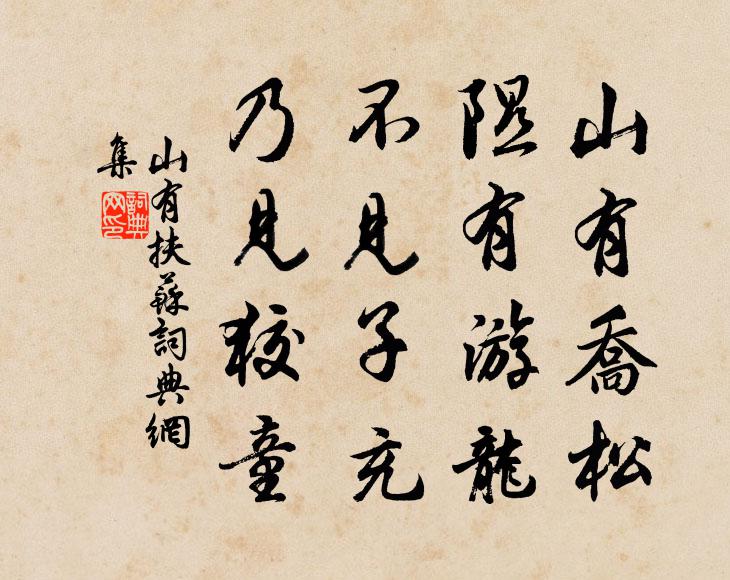 山有喬松
隰有游龍
不見子充
乃見狡童
山有扶蘇詞典網
集
詞典
网印